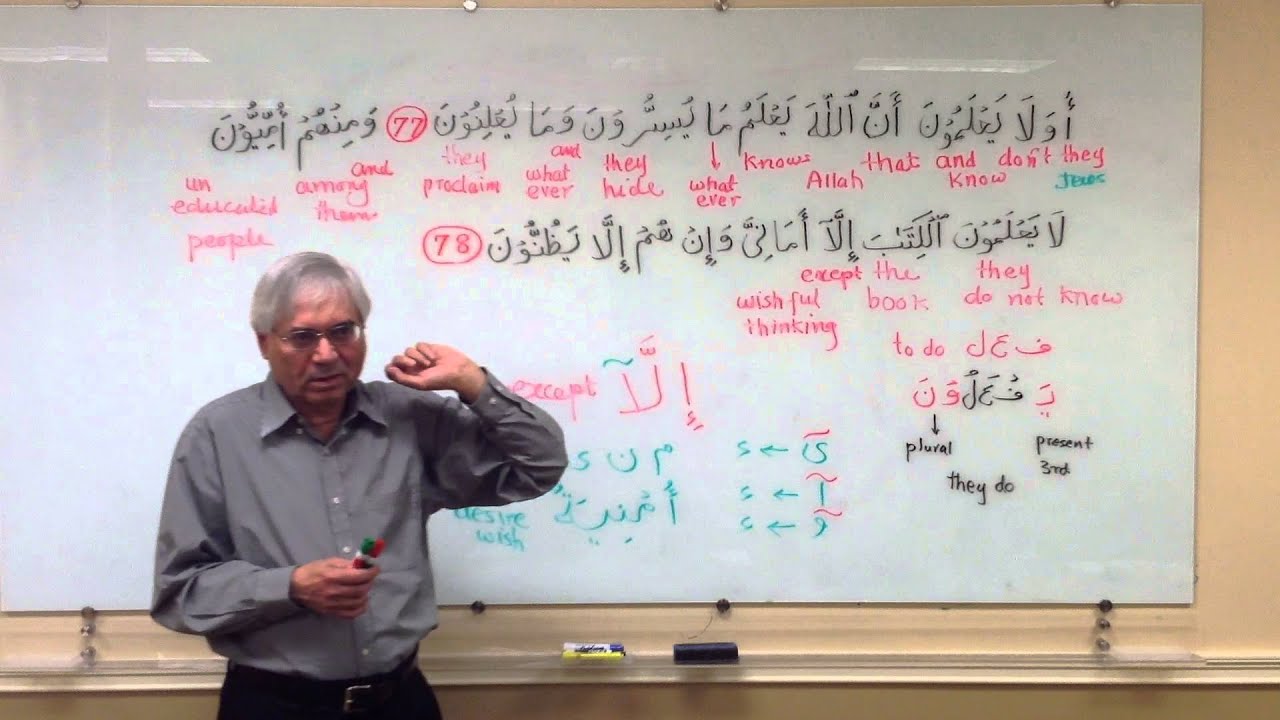 أَوَلَا يَعْلَمُوْنَ أَنَّ ٱللَّهَ يَعْلَمُ مَا يُسِرُّوْنَ وَمَا يُعْلِنُوْنَ 77 وَمِنْهُمْ أُمِّيُّوْنَ
they don't and that knows ↓ they and they and
Jews know Allah what ever hide what ever proclaim among them un educated people
لَا يَعْلَمُوْنَ ٱلْكِتَٰبَ إِلَّآ أَمَانِىَّ وَإِنْ هُمْ إِلَّا يَظُنُّوْنَ 78
they the except
do not know book wishful thinking
to do ف ع ل
except إِلَّآ
يَفْعَلُوْنَ
↓
plural present
3rd
they do
م ن ى
ىٓ → ء
آ → ء
وٓ → ء
desire
wish